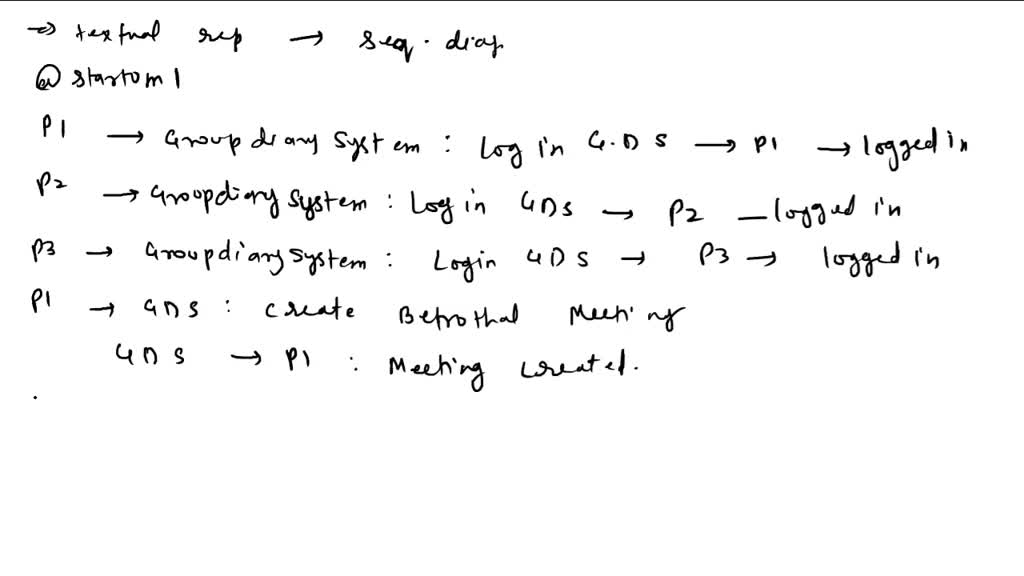 → textual rep → seq. diag.
@ startom1
P1 → Groupdiary System : Log in G.DS → P1 → logged in
P2 → Groupdiary System : Log in GDS → P2 — logged in
P3 → Groupdiary System : Login GDS → P3 → logged in
P1 → GDS : Create Betrothal Meeting
GDS → P1 : Meeting created.